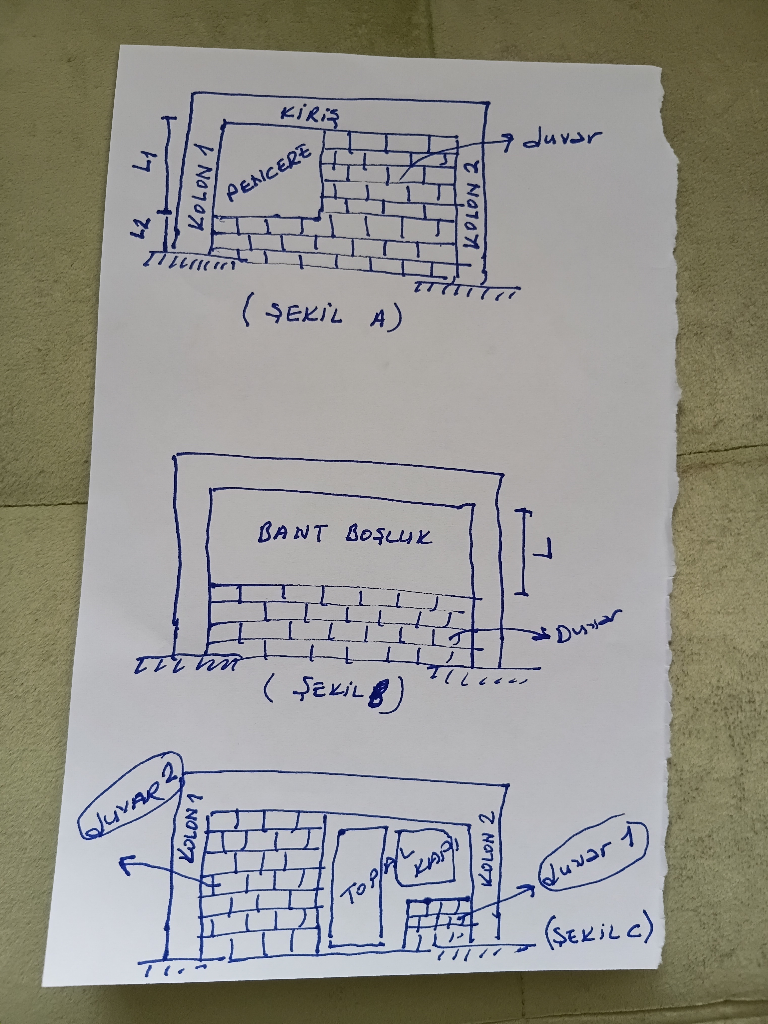 KİRİŞ
duvar
L1
KOLON 1
PENCERE
KOLON 2
L2
(ŞEKİL A)
BANT BOŞLUK
L
Duvar
(ŞEKİL B)
duvAR 2
KOLON 1
KOLON 2
TOPAL KAPI
duvar 1
(ŞEKİL C)